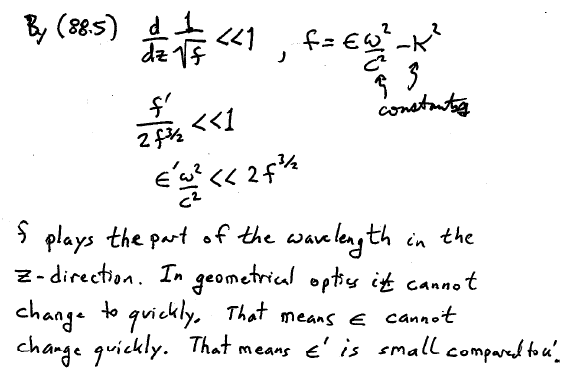 By (88.5) d/dz 1/√f <<1 , f = ϵ ω²/c² - K²
constants
f'/2f^3/2 <<1
ϵ' ω²/c² << 2 f^3/2
f plays the part of the wavelength in the
z-direction. In geometrical optics it cannot
change to quickly. That means ϵ cannot
change quickly. That means ϵ' is small compared to u'.